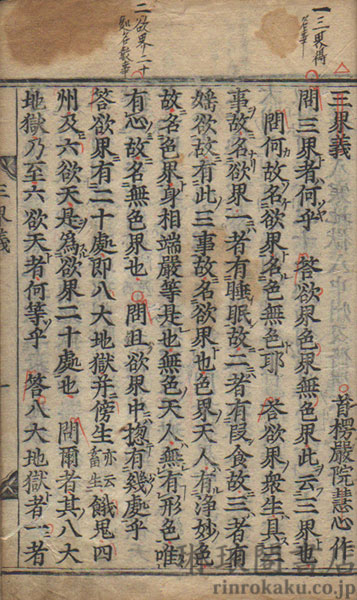 一三界揭
三界義
首楞嚴院慧心作
問三界者何乎 答欲界色界無色界此云三界也
問何故名欲界名色無色耶 答欲界衆生具三
事故名欲界一者有睡眠故二者有段食故三者有
婬欲故有此三事故名欲界也色界天人有淨妙色
故名色界身相端嚴等是也無色天人無有形色唯
有心故名無色界也 問且欲界中惣有幾處乎
答欲界有二十處即八大地獄并傍生亦云畜生餓鬼四
州及六欲天是為欲界二十處也 問爾者其八大
地獄乃至六欲天者何等乎 答八大地獄者一者
二欲界二十
三界義
一
琳琅閣書店
rinrokaku.co.jp